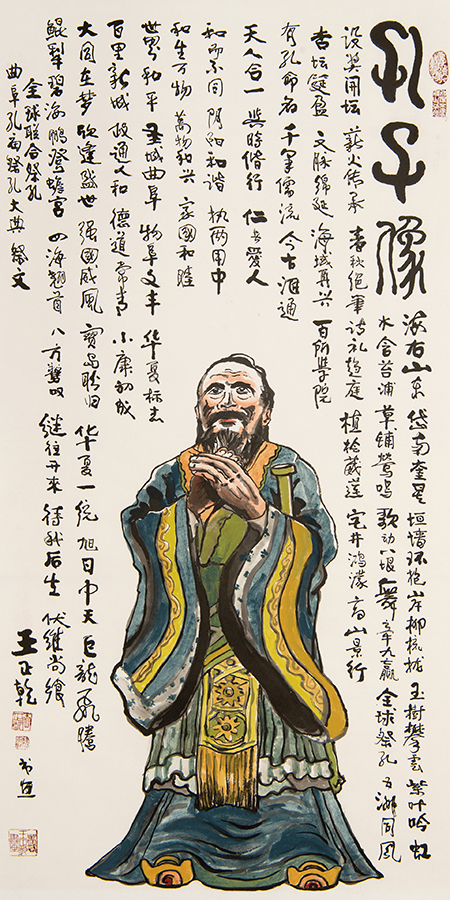 孔子像
海右山东 岱南奎星 垣墙环抱 岸柳梳拢 玉树攀云 紫叶吟虹
水含苔浦 草铺莺鸣 歌动八垠 舞 九赢 全球祭孔 五洲同风
设奠开坛 薪火传承 春秋绝笔 诗礼趋庭 植桧藏莲 宅井鸿濛 高山景行
杏坛 盈 文脉绵延 海域再兴 百所学院
有孔命名 千军儒流 今古汇通
天人合一 與時偕行 仁者愛人
和而不同 阴阳和谐 执两用中
和生万物 萬物和兴 家國和睦
世界和平 圣城曲阜 物阜文丰 华夏标志
百里新城 政通人和 德道常青 小康初成
大同在梦 欣逢盛世 强國威風 寶岛盼归 华夏一统 旭日中天 巨龙飞腾
鲲犁碧海 鹏登蟾宫 四海翘首 八方惊叹 继往开来 待我后生 伏维尚飨
全球联合祭孔
曲阜孔庙祭孔大典 祭文
王正乾